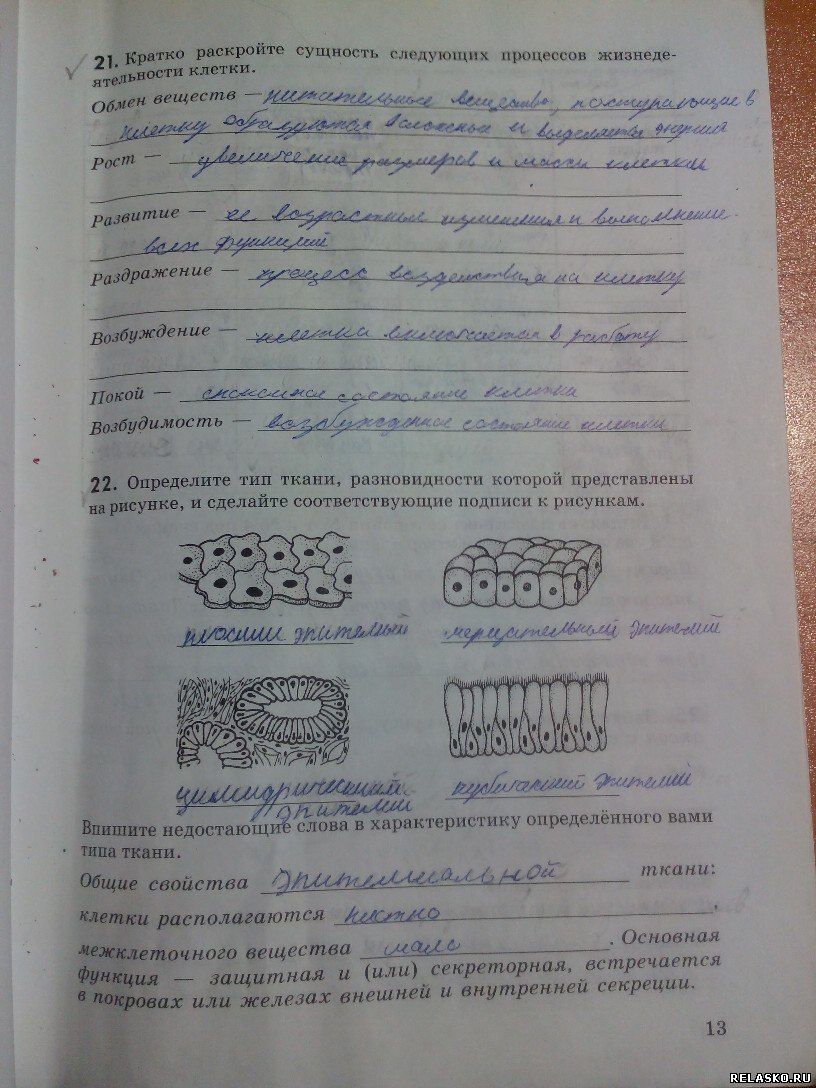 21. Кратко раскройте сущность следующих процессов жизнеде-
ятельности клетки.
Обмен веществ — питательные вещества, поступающие в
клетку образуются в сложные и выделяется энергия
Рост — увеличение размеров и массы клетки
Развитие — ее возрастные изменения и выполнение
всех функций
Раздражение — процесс воздействия на клетку
Возбуждение — клетка включается в работу
Покой — спокойное состояние клетки
Возбудимость — возбужденное состояние клетки
22. Определите тип ткани, разновидности которой представлены
на рисунке, и сделайте соответствующие подписи к рисункам.
плоский эпителий мерцательный эпителий
цилиндрический кубический эпителий
эпителий
Впишите недостающие слова в характеристику определённого вами
типа ткани.
Общие свойства эпителиальной ткани:
клетки располагаются плотно
межклеточного вещества мало. Основная
функция — защитная и (или) секреторная, встречается
в покровах или железах внешней и внутренней секреции.
13
RELASKO.RU